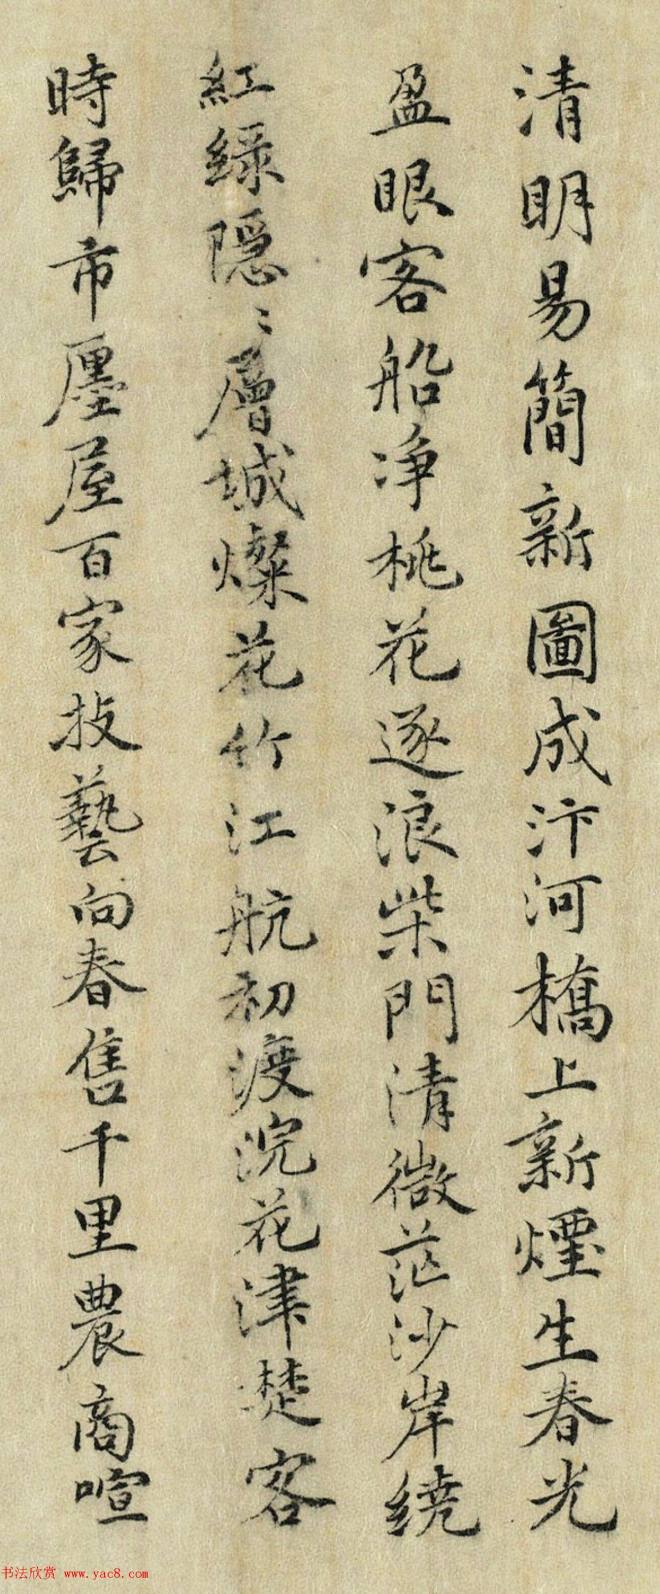 清明易簡新圖成汴河橋上新煙生春光
盈眼客船净桃花逐浪柴門清微茫沙岸繞
紅綠隠〻層城燦花竹江航初渡浣花津楚客
時歸市廛屋百家技藝向春售千里農商喧
书法欣赏 www.yac8.com